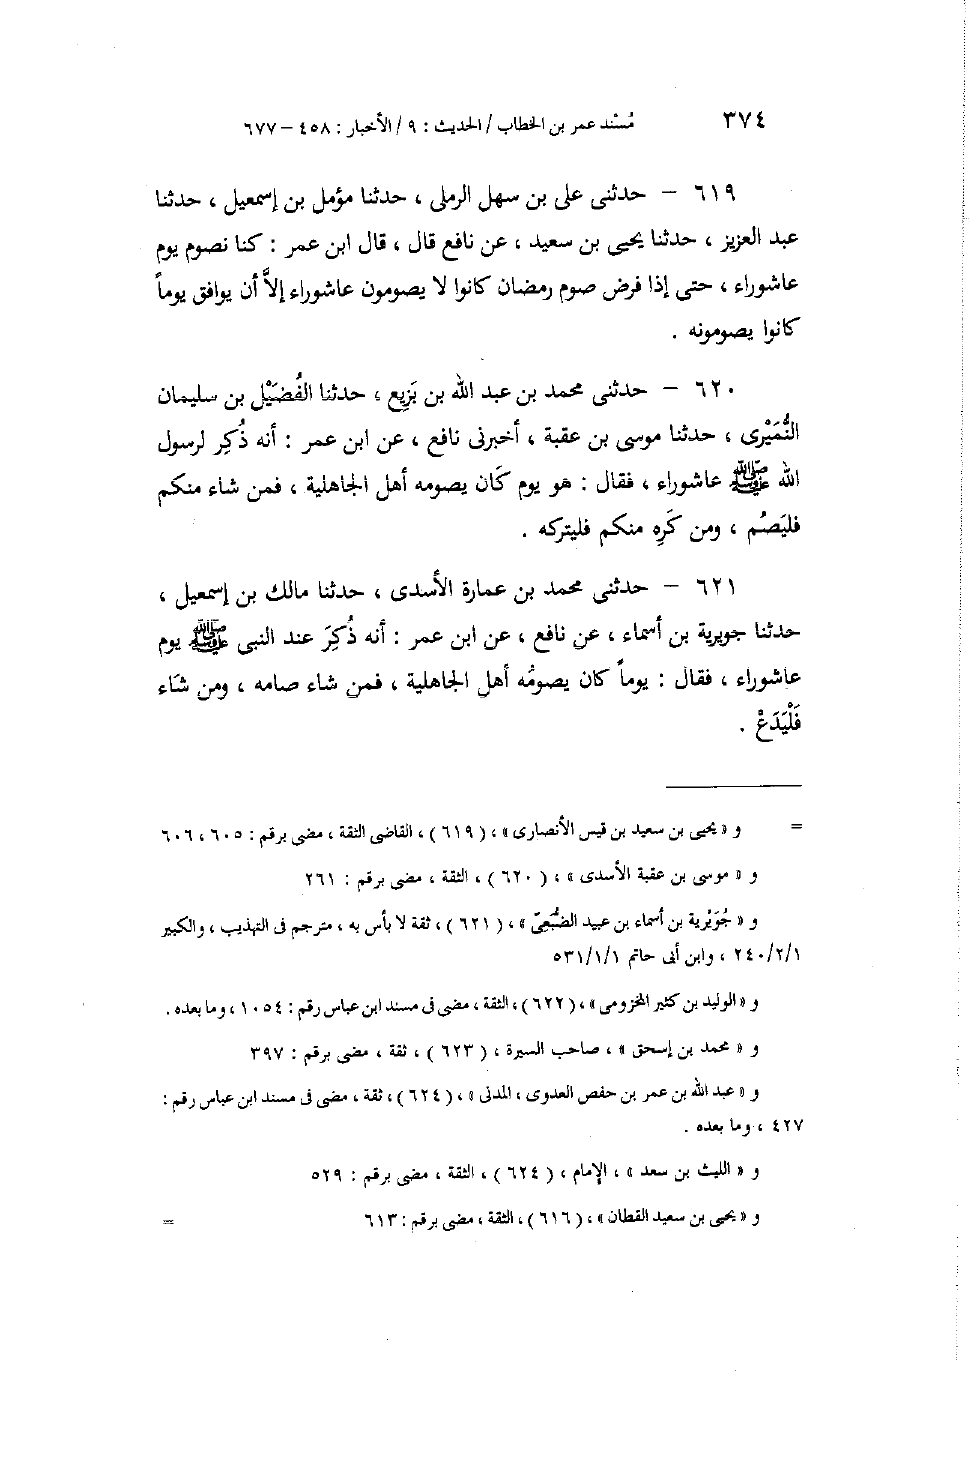 ٣٧٤ مُسْند عمر بن الخطاب / الحديث : ٩ / الأخبار : ٤٥٨ – ٦٧٧
٦١٩ – حدثنى على بن سهل الرملى ، حدثنا مؤمل بن إسمعيل ، حدثنا
عبد العزيز ، حدثنا يحيى بن سعيد ، عن نافع قال ، قال ابن عمر : كنا نصوم يوم
عاشوراء ، حتى إذا فرض صوم رمضان كانوا لا يصومون عاشوراء إلاَّ أن يوافق يوماً
كانوا يصومونه .
٦٢٠ – حدثنى محمد بن عبد الله بن بَزِيع ، حدثنا الفُضَيْل بن سليمان
النُّمَيْرى ، حدثنا موسى بن عقبة ، أخبرنى نافع ، عن ابن عمر : أنه ذُكِر لرسول
الله ﷺ عاشوراء ، فقال : هو يوم كَان يصومه أهل الجاهلية ، فمن شاء منكم
فليَصُم ، ومن كَرِه منكم فليتركه .
٦٢١ – حدثنى محمد بن عمارة الأسدى ، حدثنا مالك بن إسمعيل ،
حدثنا جويرية بن أسماء ، عن نافع ، عن ابن عمر : أنه ذُكِرَ عند النبى ﷺ يوم
عاشوراء ، فقال : يوماً كان يصومُه أهل الجاهلية ، فمن شاء صامه ، ومن شَاء
فَلْيَدَعْ .
= و « يحيى بن سعيد بن قيس الأنصارى » ، ( ٦١٩ ) ، القاضى الثقة ، مضى برقم : ٦٠٥ ، ٦٠٦
و « موسى بن عقبة الأسدى » ، ( ٦٢٠ ) ، الثقة ، مضى برقم : ٢٦١
و « جُوَيْرية بن أسماء بن عبيد الضُّبَعِىّ » ، ( ٦٢١ ) ، ثقة لا بأس به ، مترجم فى التهذيب ، والكبير
٢٤٠/٢/١ ، وابن أبى حاتم ٥٣١/١/١
و « الوليد بن كثير المخزومى » ، ( ٦٢٢ ) ، الثقة ، مضى فى مسند ابن عباس رقم : ١٠٥٤ ، وما بعده .
و « محمد بن إسحق » ، صاحب السيرة ، ( ٦٢٣ ) ، ثقة ، مضى برقم : ٣٩٧
و « عبد الله بن عمر بن حفص العدوى ، المدنى » ، ( ٦٢٤ ) ، ثقة ، مضى فى مسند ابن عباس رقم :
٤٢٧ ، وما بعده .
و « الليث بن سعد » ، الإمام ، ( ٦٢٤ ) ، الثقة ، مضى برقم : ٥٢٩
و « يحيى بن سعيد القطان » ، ( ٦١٦ ) ، الثقة ، مضى برقم : ٦١٣ =